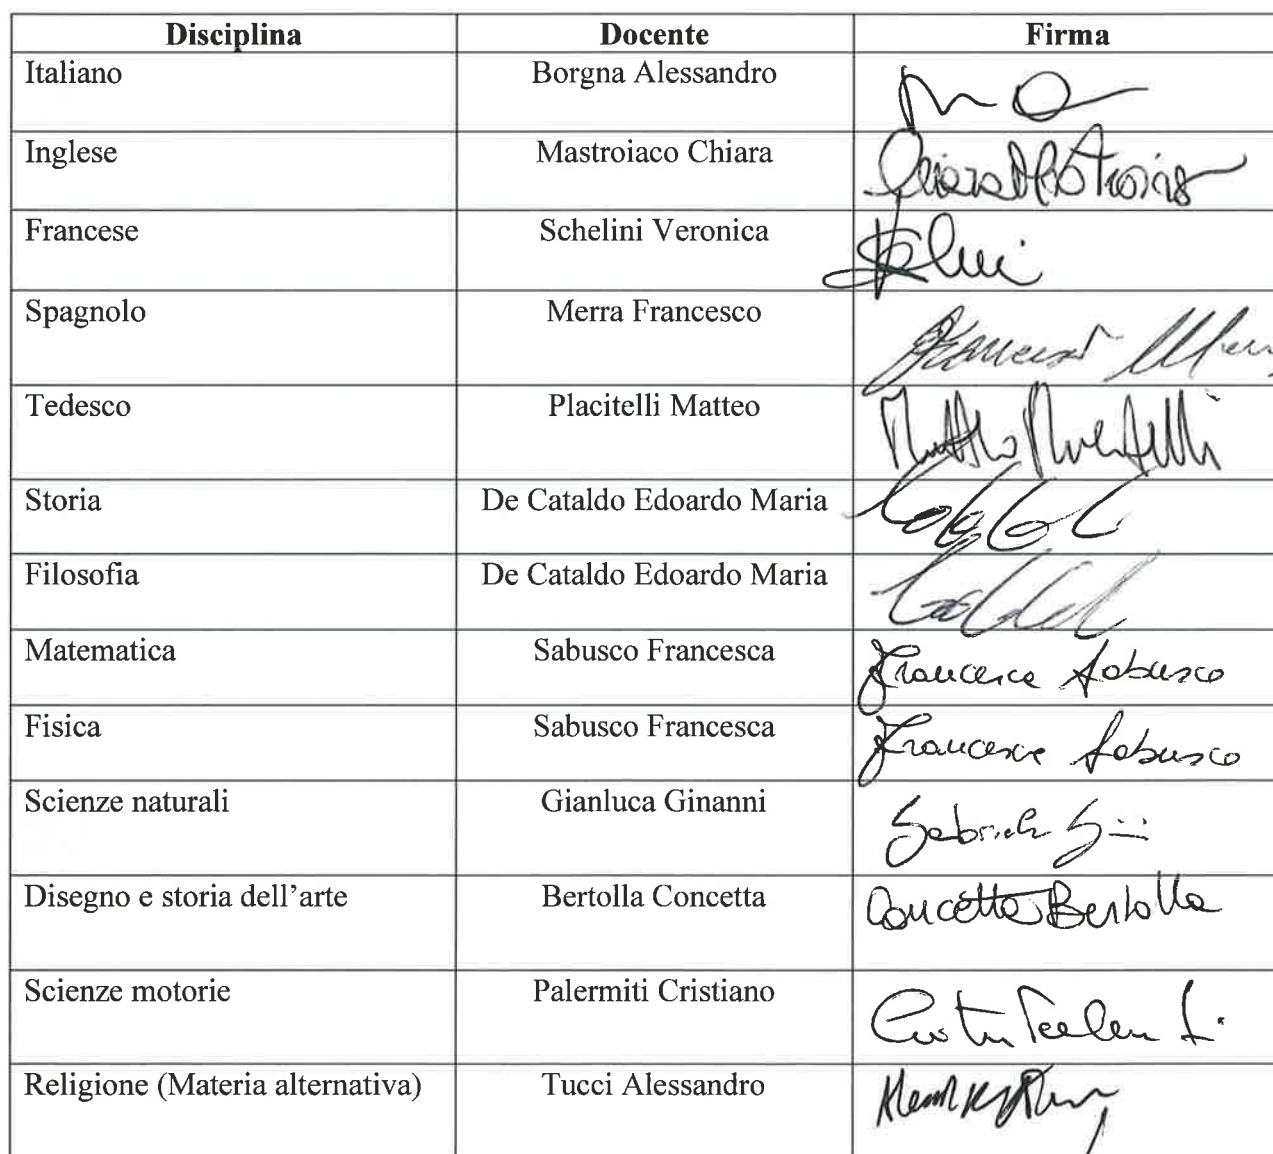 Disciplina Docente Firma
Italiano Borgna Alessandro
Inglese Mastroiaco Chiara
Francese Schelini Veronica
Spagnolo Merra Francesco
Tedesco Placitelli Matteo
Storia De Cataldo Edoardo Maria
Filosofia De Cataldo Edoardo Maria
Matematica Sabusco Francesca Francesca Sabusco
Fisica Sabusco Francesca Francesca Sabusco
Scienze naturali Gianluca Ginanni
Disegno e storia dell’arte Bertolla Concetta Concetta Bertolla
Scienze motorie Palermiti Cristiano
Religione (Materia alternativa) Tucci Alessandro